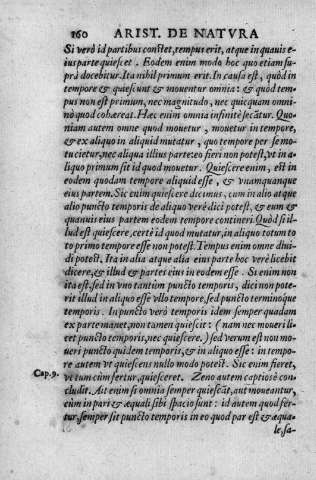 160 ARIST. DE NATVRA
Si verò id partibus constet, tempus erit, atque in quauis e-
ius parte quiescet. Eodem enim modo hoc quo etiam su-
prà docebitur. Ita nihil primum erit. In causa est, quòd in
tempore & quiescunt & mouentur omnia: & quòd tem-
pus non est primum, nec magnitudo, nec quicquam omni-
nò quod cohæreat. Hæc enim omnia infinitè secãtur. Quo-
niam autem omne quod mouetur, mouetur in tempore,
& ex aliquo in aliquid mutatur, quo tempore per se mo-
tu cietur, nec aliqua illius parte: eo fieri non potest, vt in a-
liquo primum sit id quod mouetur. Quiescere enim, est in
eodem quodam tempore aliquid esse, & vnamquamque
eius partem. Sic enim quiescere dicimus, cum in alio atque
alio puncto temporis de aliquo verè dici potest, & eum &
quamuis eius partem eodem tempore contineri. Quòd si il-
lud est quiescere, certè id quod mutatur, in aliquo totum to
to primo tempore esse non potest. Tempus enim omne diui-
di potest. Ita in alia atque alia eius parte hoc verè licebit
dicere, & illud & partes eius in eodem esse. Si enim non
ita est, sed in vno tantùm puncto temporis, dici non pote-
rit illud in aliquo esse vllo tempore, sed puncto terminoque
temporis. In puncto verò temporis idem semper quadam
ex parte manet, non tamen quiescit: (nam nec moueri li-
cet puncto temporis, nec quiescere.) sed verum est non mo-
ueri puncto quidem temporis, & in aliquo esse: in tempo-
re autem vt quiescens nullo modo potest. Sic enim fieret,
Cap. 9. vt tum cùm fertur, quiesceret. Zeno autem captiosè con-
cludit. Ait enim si omnia semper quiescãt, aut moueantur,
cùm in pari & æquali sibi spacio sunt: id autem quod fer-
tur, semper sit puncto temporis in eo quod par est & æqua-
le, sa-